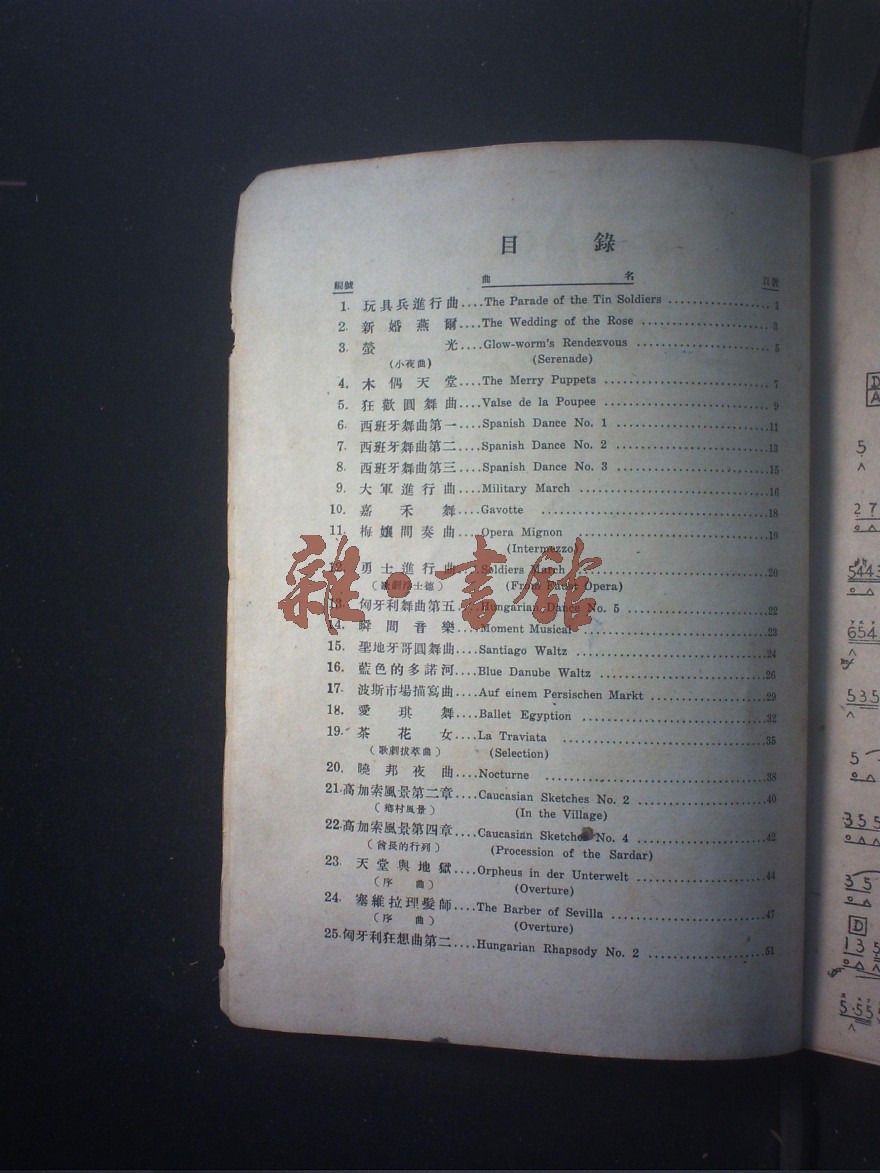 目 錄
編號 曲 名 頁數
1. 玩具兵進行曲....The Parade of the Tin Soldiers .................. 1
2. 新婚燕爾....The Wedding of the Rose ....................... 3
3. 螢光....Glow-worm's Rendezvous ....................... 5
(小夜曲) (Serenade)
4. 木偶天堂....The Merry Puppets ............................. 7
5. 狂歡圓舞曲....Valse de la Poupee ............................. 9
6. 西班牙舞曲第一....Spanish Dance No. 1 ...........................11
7. 西班牙舞曲第二....Spanish Dance No. 2 ...........................13
8. 西班牙舞曲第三....Spanish Dance No. 3 ...........................15
9. 大軍進行曲....Military March .................................16
10. 嘉禾舞....Gavotte .......................................18
11. 梅孃間奏曲....Opera Mignon ...................................19
(Intermezzo)
12. 勇士進行曲....Soldiers March .................................20
(歌劇浮士德) (From Faust Opera)
13. 匈牙利舞曲第五....Hungarian Dance No. 5 .........................22
14. 瞬間音樂....Moment Musical ................................23
15. 聖地牙哥圓舞曲....Santiago Waltz ................................24
16. 藍色的多諾河....Blue Danube Waltz .............................26
17. 波斯市場描寫曲....Auf einem Persischen Markt ....................29
18. 愛琪舞....Ballet Egyption ................................32
19. 茶花女....La Traviata ...................................35
(歌劇拔萃曲) (Selection)
20. 曉邦夜曲....Nocturne ......................................38
21. 高加索風景第二章....Caucasian Sketches No. 2 .......................40
(鄉村風景) (In the Village)
22. 高加索風景第四章....Caucasian Sketches No. 4 .......................42
(酋長的行列) (Procession of the Sardar)
23. 天堂與地獄....Orpheus in der Unterwelt .......................44
(序 曲) (Overture)
24. 塞維拉理髮師....The Barber of Sevilla ..........................47
(序 曲) (Overture)
25. 匈牙利狂想曲第二....Hungarian Rhapsody No. 2 ......................51
雜·書館